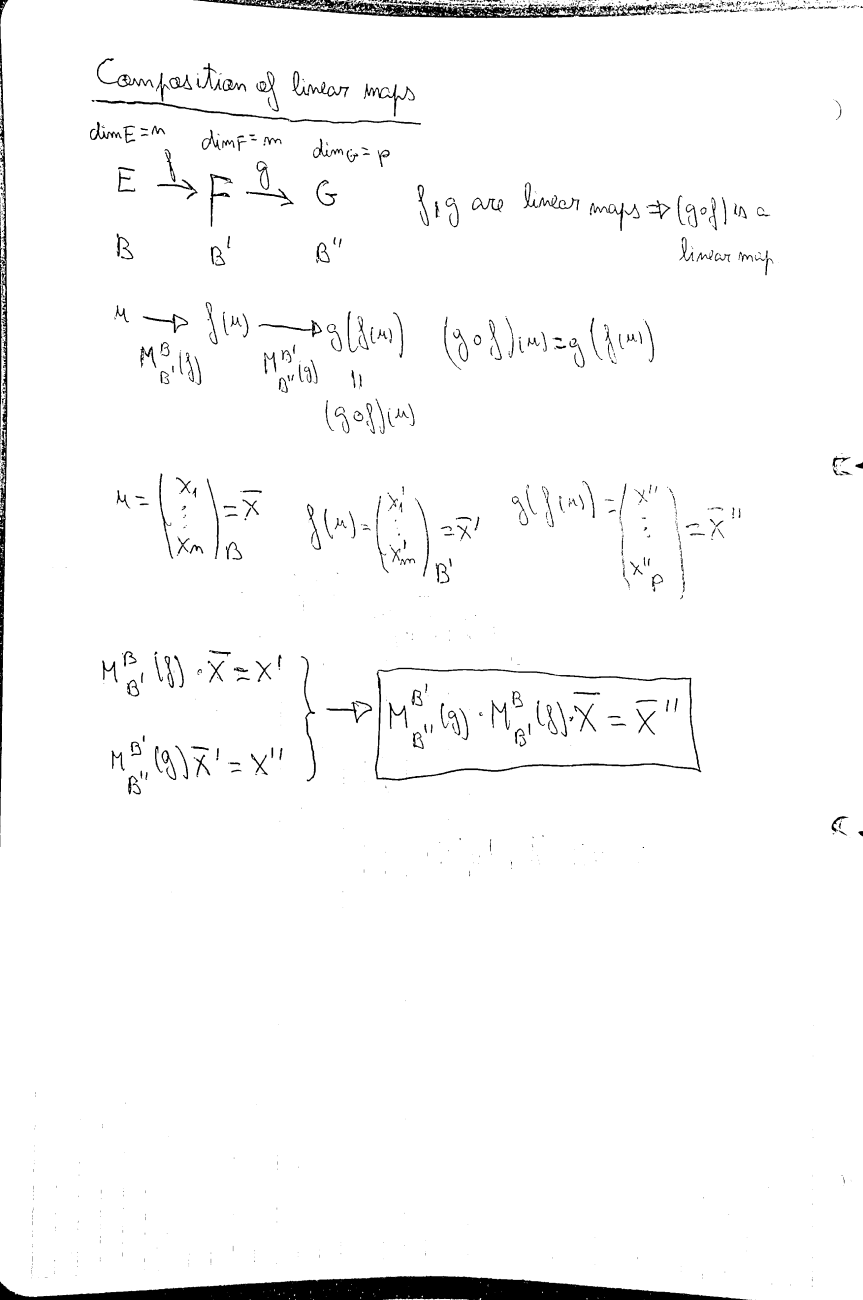 Composition of linear maps
dim E = n dim F = m dim G = p
E →f F →g G f, g are linear maps ⇒ (g∘f) is a
B B' B'' linear map
u → f(u) → g(f(u)) (g∘f)(u) = g(f(u))
M^B_B'(f) M^B'_B''(g) ||
(g∘f)(u)
u = (x₁ ⋮ xₙ)_B = X̄ f(u) = (x₁' ⋮ x'ₘ)_B' = X̄' g(f(u)) = (x'' ⋮ x''_p) = X̄''
M^B_B'(f) · X̄ = X'
M^B'_B''(g) X̄' = X''
} → M^B'_B''(g) · M^B_B'(f) · X̄ = X̄''